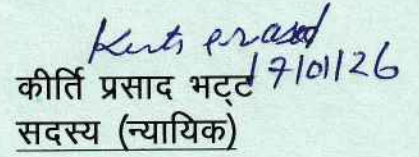 Kirti prasad
17/01/26
कीर्ति प्रसाद भट्ट
सदस्य (न्यायिक)